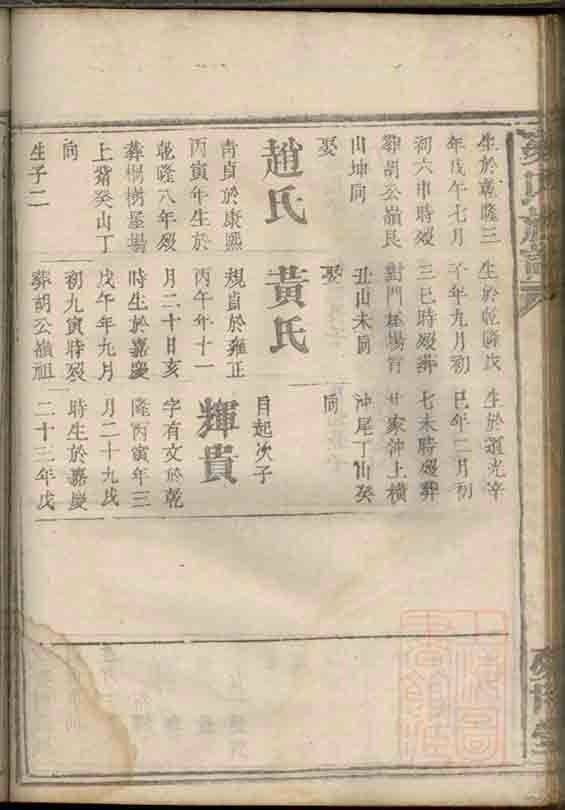 生於乾隆三
年戊午七月
初六申時歿
葬胡公嶺艮
山坤向
娶
趙氏
青貞於康熙
丙寅年生於
乾隆八年歿
葬桐樹屋場
上猪癸山丁
向
生子二
生於乾隆戊
子年九月初
三巳時歿葬
對門屋場背
丑山未向
娶
黃氏
規貞於雍正
丙午年十一
月二十日亥
時生於嘉慶
戊午年九月
初九寅時歿
葬胡公嶺祖
生於道光辛
巳年二月初
七未時歿葬
甘家沖上橫
沖尾丁山癸
向
目起次子
輝貴
字有文於乾
隆丙寅年三
月二十九戌
時生於嘉慶
二十三年戊
氏族譜
堂
上海圖
書館藏